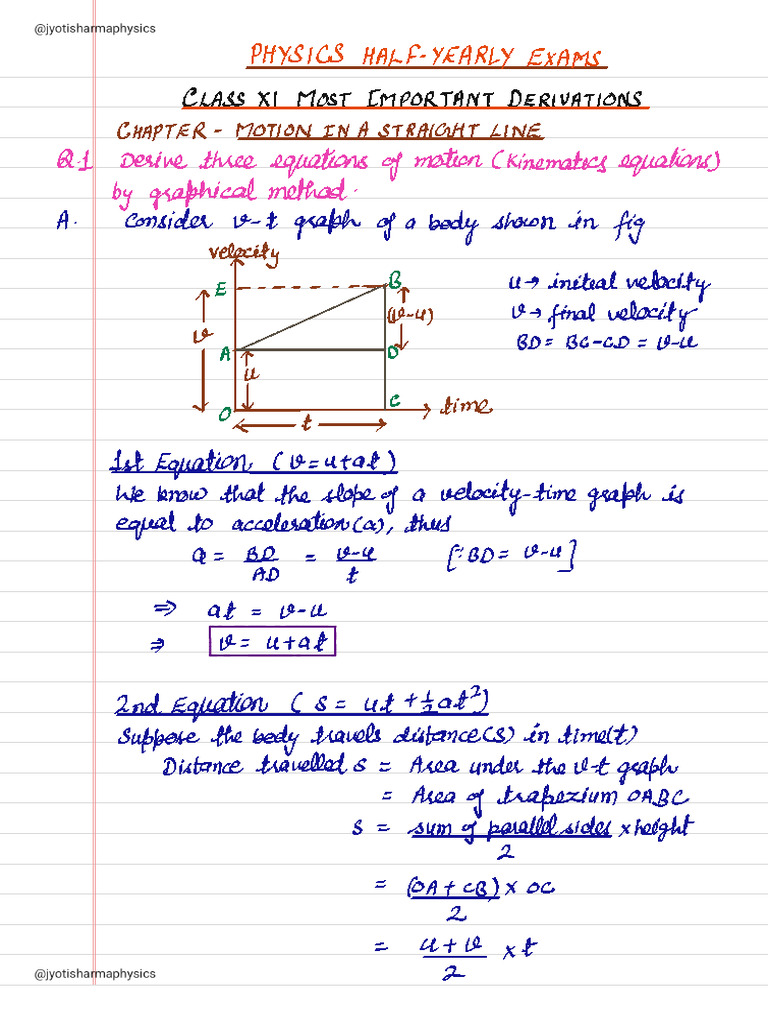 @jyotisharmaphysics
PHYSICS HALF-YEARLY EXAMS
CLASS XI MOST IMPORTANT DERIVATIONS
CHAPTER - MOTION IN A STRAIGHT LINE
Q.1 Derive three equations of motion (Kinematics equations)
by graphical method.
A. Consider v-t graph of a body shown in fig
velocity
E
B
v
(v-u)
u→ initial velocity
v→ final velocity
BD = BC-CD = v-u
A
D
u
O
C
time
t
1st Equation (v=u+at)
We know that the slope of a velocity-time graph is
equal to acceleration(a), thus
a = BD/AD = v-u/t [∵BD = v-u]
⇒ at = v-u
⇒ v = u+at
2nd Equation ( s = ut + 1/2 at²)
Suppose the body travels distance(s) in time(t)
Distance travelled s = Area under the v-t graph
= Area of trapezium OABC
s = sum of parallel sides/2 × height
= (OA + CB)/2 × OC
= u + v/2 × t
@jyotisharmaphysics